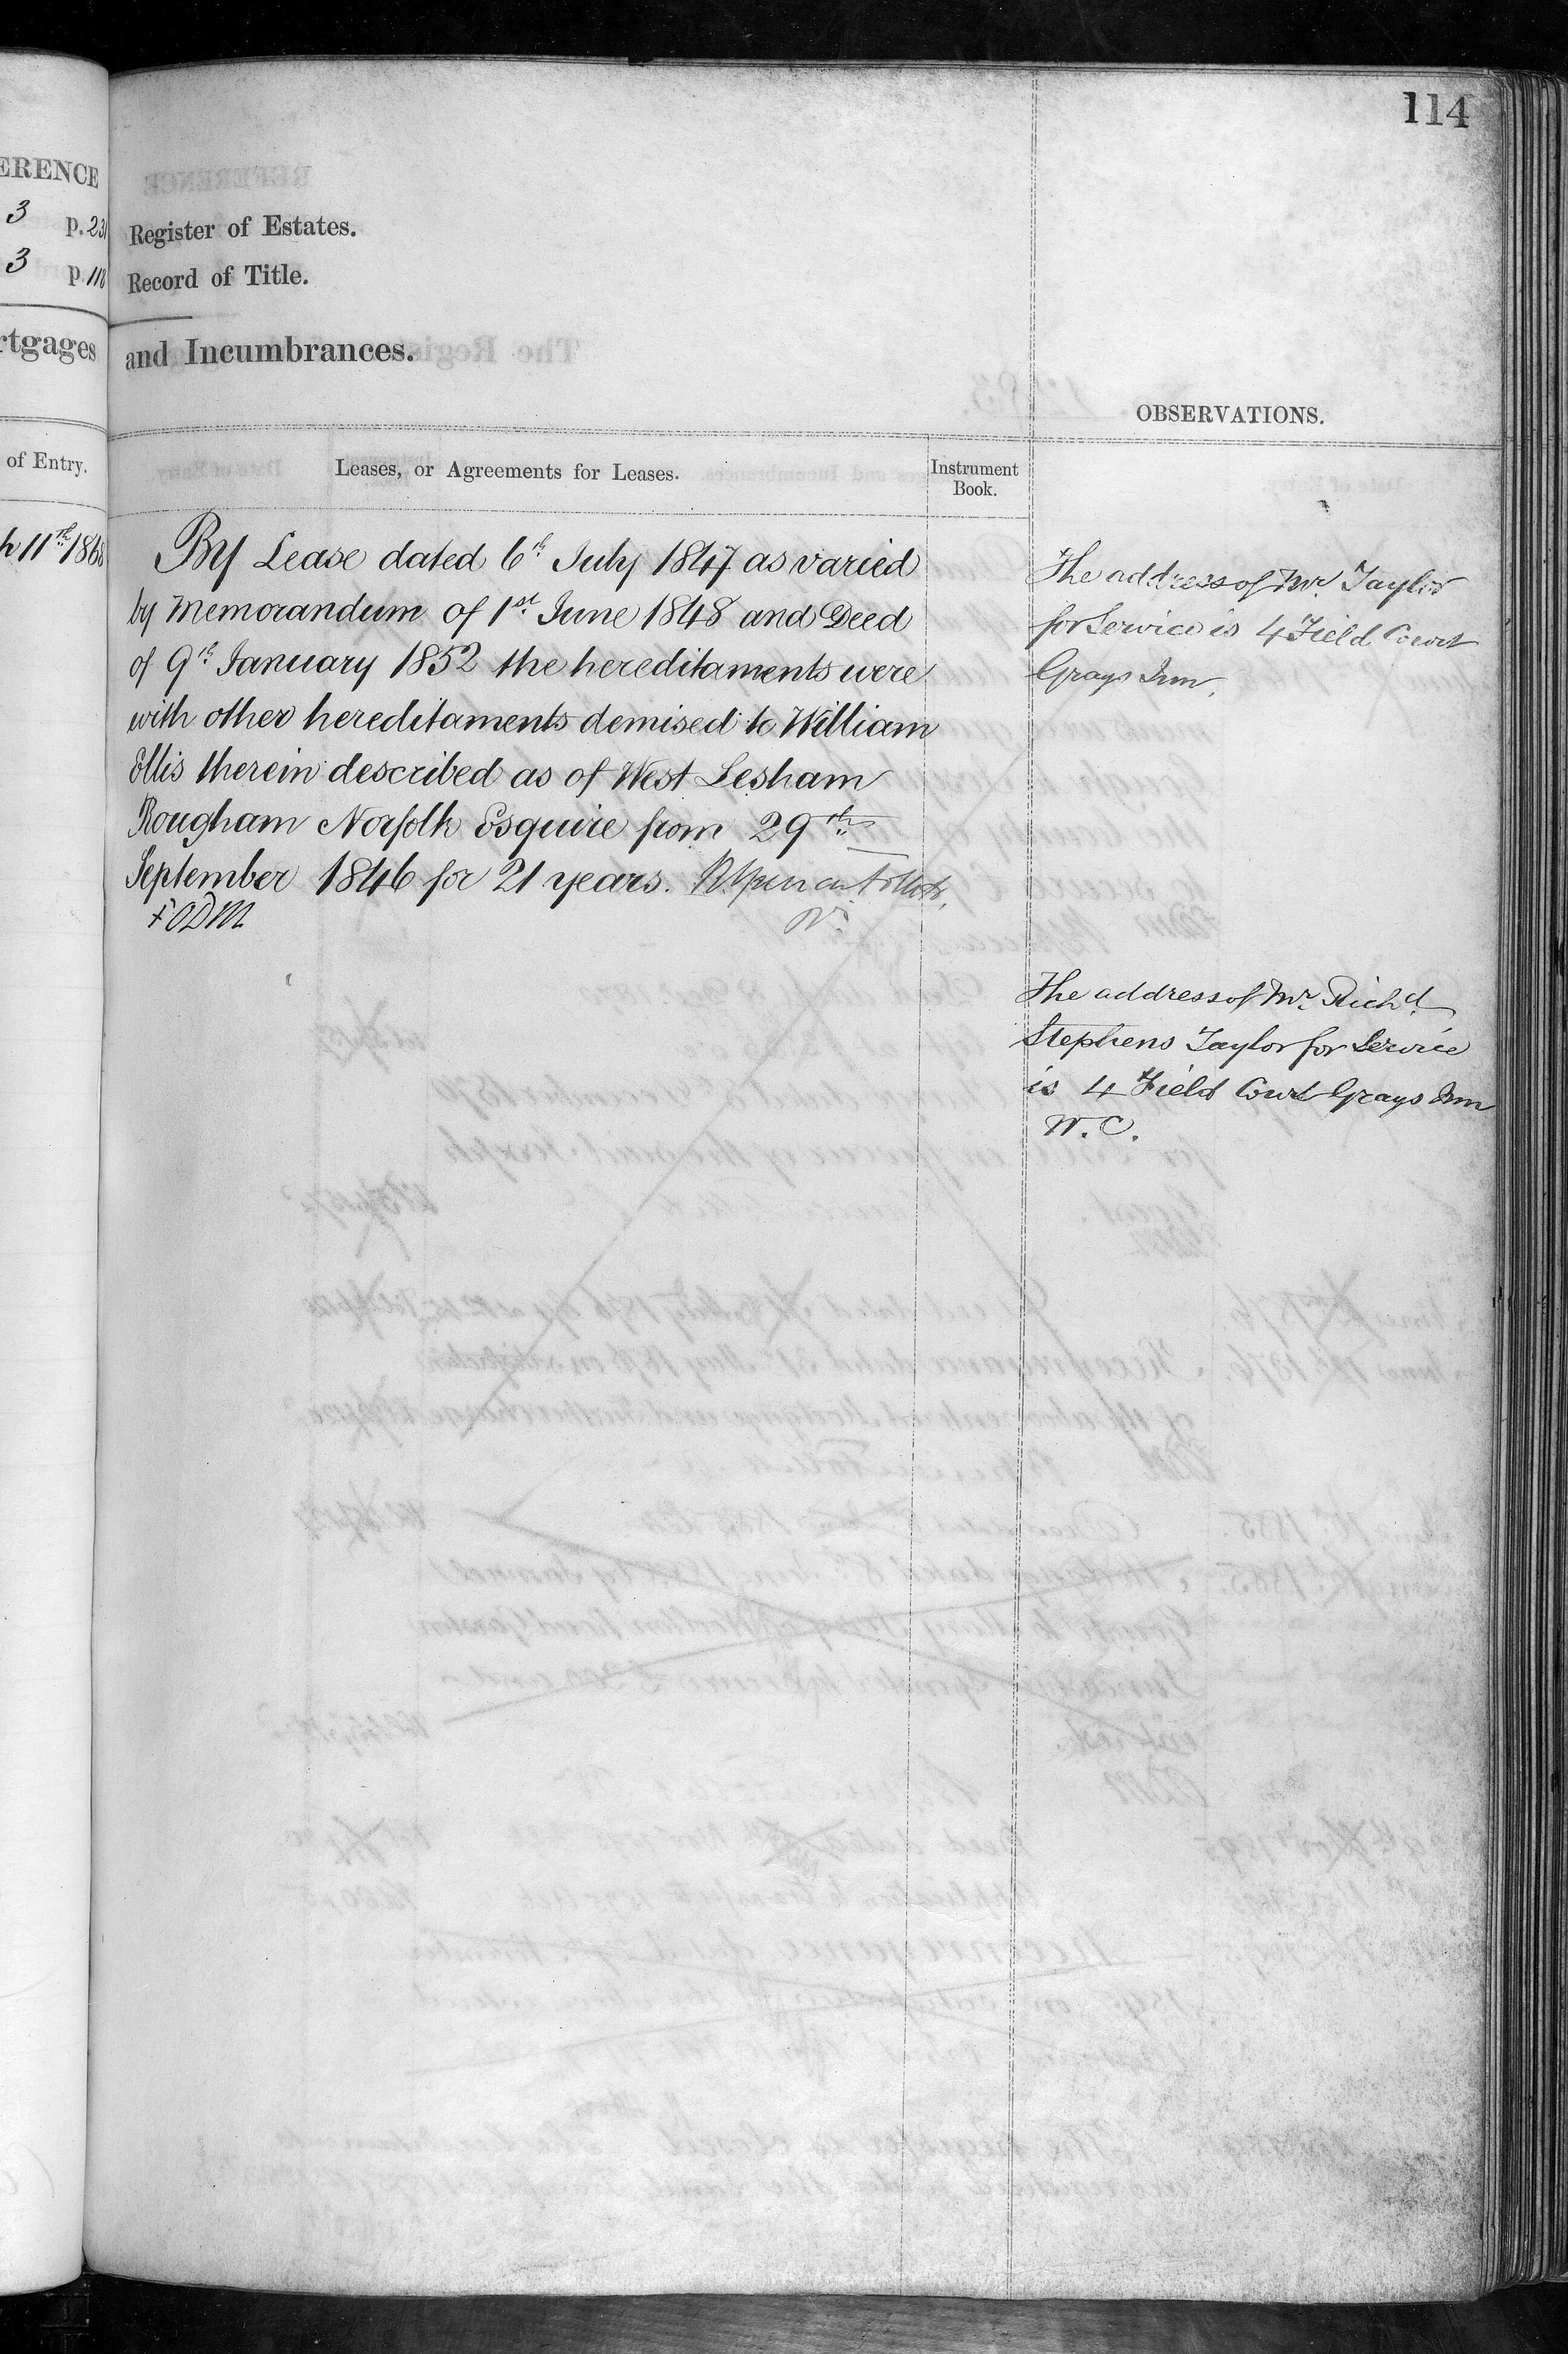 114
ERENCE
3 p. 231
3 p. 118
rtgages
of Entry.
h 11th 1868
Register of Estates.
Record of Title.
and Incumbrances.
OBSERVATIONS.
Leases, or Agreements for Leases.
Instrument
Book.
By Lease dated 6th July 1847 as varied
by Memorandum of 1st June 1848 and Deed
of 9th January 1852 the hereditaments were
with other hereditaments demised to William
Ellis therein described as of West Lesham
Rougham Norfolk Esquire from 29th
September 1846 for 21 years.
The address of Mr. Taylor
for Service is 4 Field Court
Grays Inn.
The address of Mr. Richd.
Stephens Taylor for Service
is 4 Field Court Grays Inn
W. C.